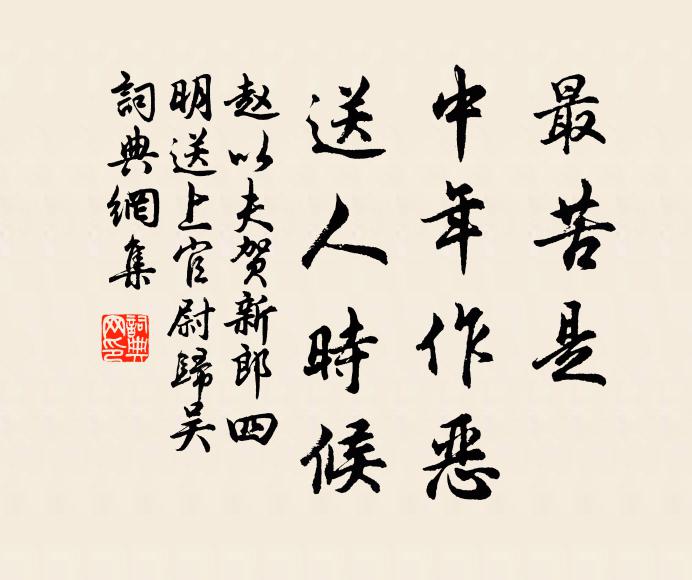 最苦是
中年作惡
送人時候
赵以夫贺新郎四
明送上官尉歸吴
詞典網集
詞典
网印